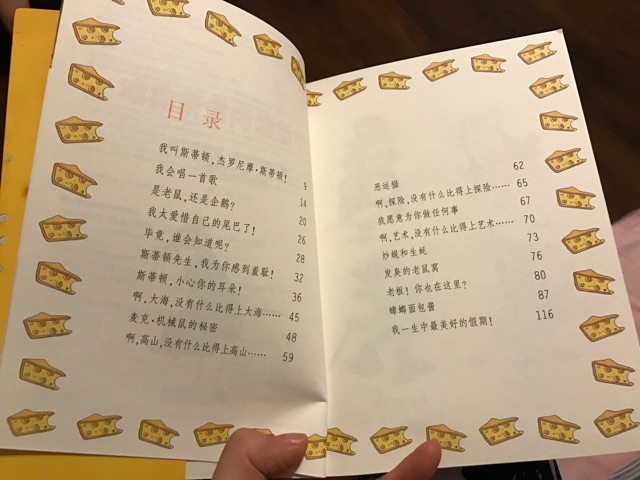 目录
我叫斯蒂顿，杰罗尼摩·斯蒂顿！ 9
我会唱一首歌 14
是老鼠，还是企鹅？ 20
我太爱惜自己的尾巴了！ 26
毕竟，谁会知道呢？ 28
斯蒂顿先生，我为你感到羞耻！ 32
斯蒂顿，小心你的耳朵！ 36
啊，大海，没有什么比得上大海…… 45
麦克·机械鼠的秘密 48
啊，高山，没有什么比得上高山…… 59
恶运猫 62
啊，探险，没有什么比得上探险…… 65
我愿意为你做任何事 67
啊，艺术，没有什么比得上艺术…… 70
炒蚬和生蚝 73
发臭的老鼠窝 76
老板！你也在这里？ 80
蟑螂面包酱 87
我一生中最美好的假期！ 116